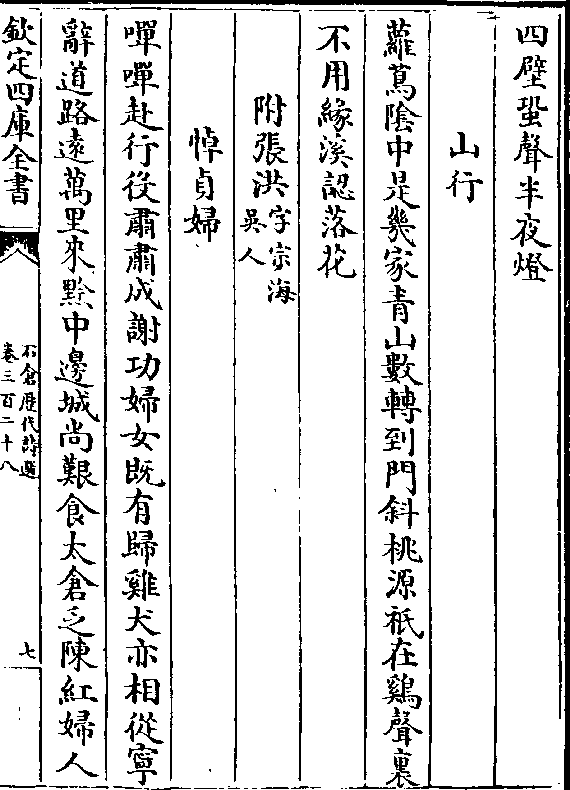 四壁蛩聲半夜燈
山行
蘿蔦陰中是幾家青山數轉到門斜桃源祇在鷄聲裏
不用緣溪認落花
附張洪字宗海
吳人
悼貞婦
嘽嘽赴行役肅肅成謝功婦女既有歸雞犬亦相從寧
辭道路遠萬里來黔中邊城尚艱食太倉乏陳紅婦人
欽定四庫全書
石倉歷代詩選
卷三百二十八
七